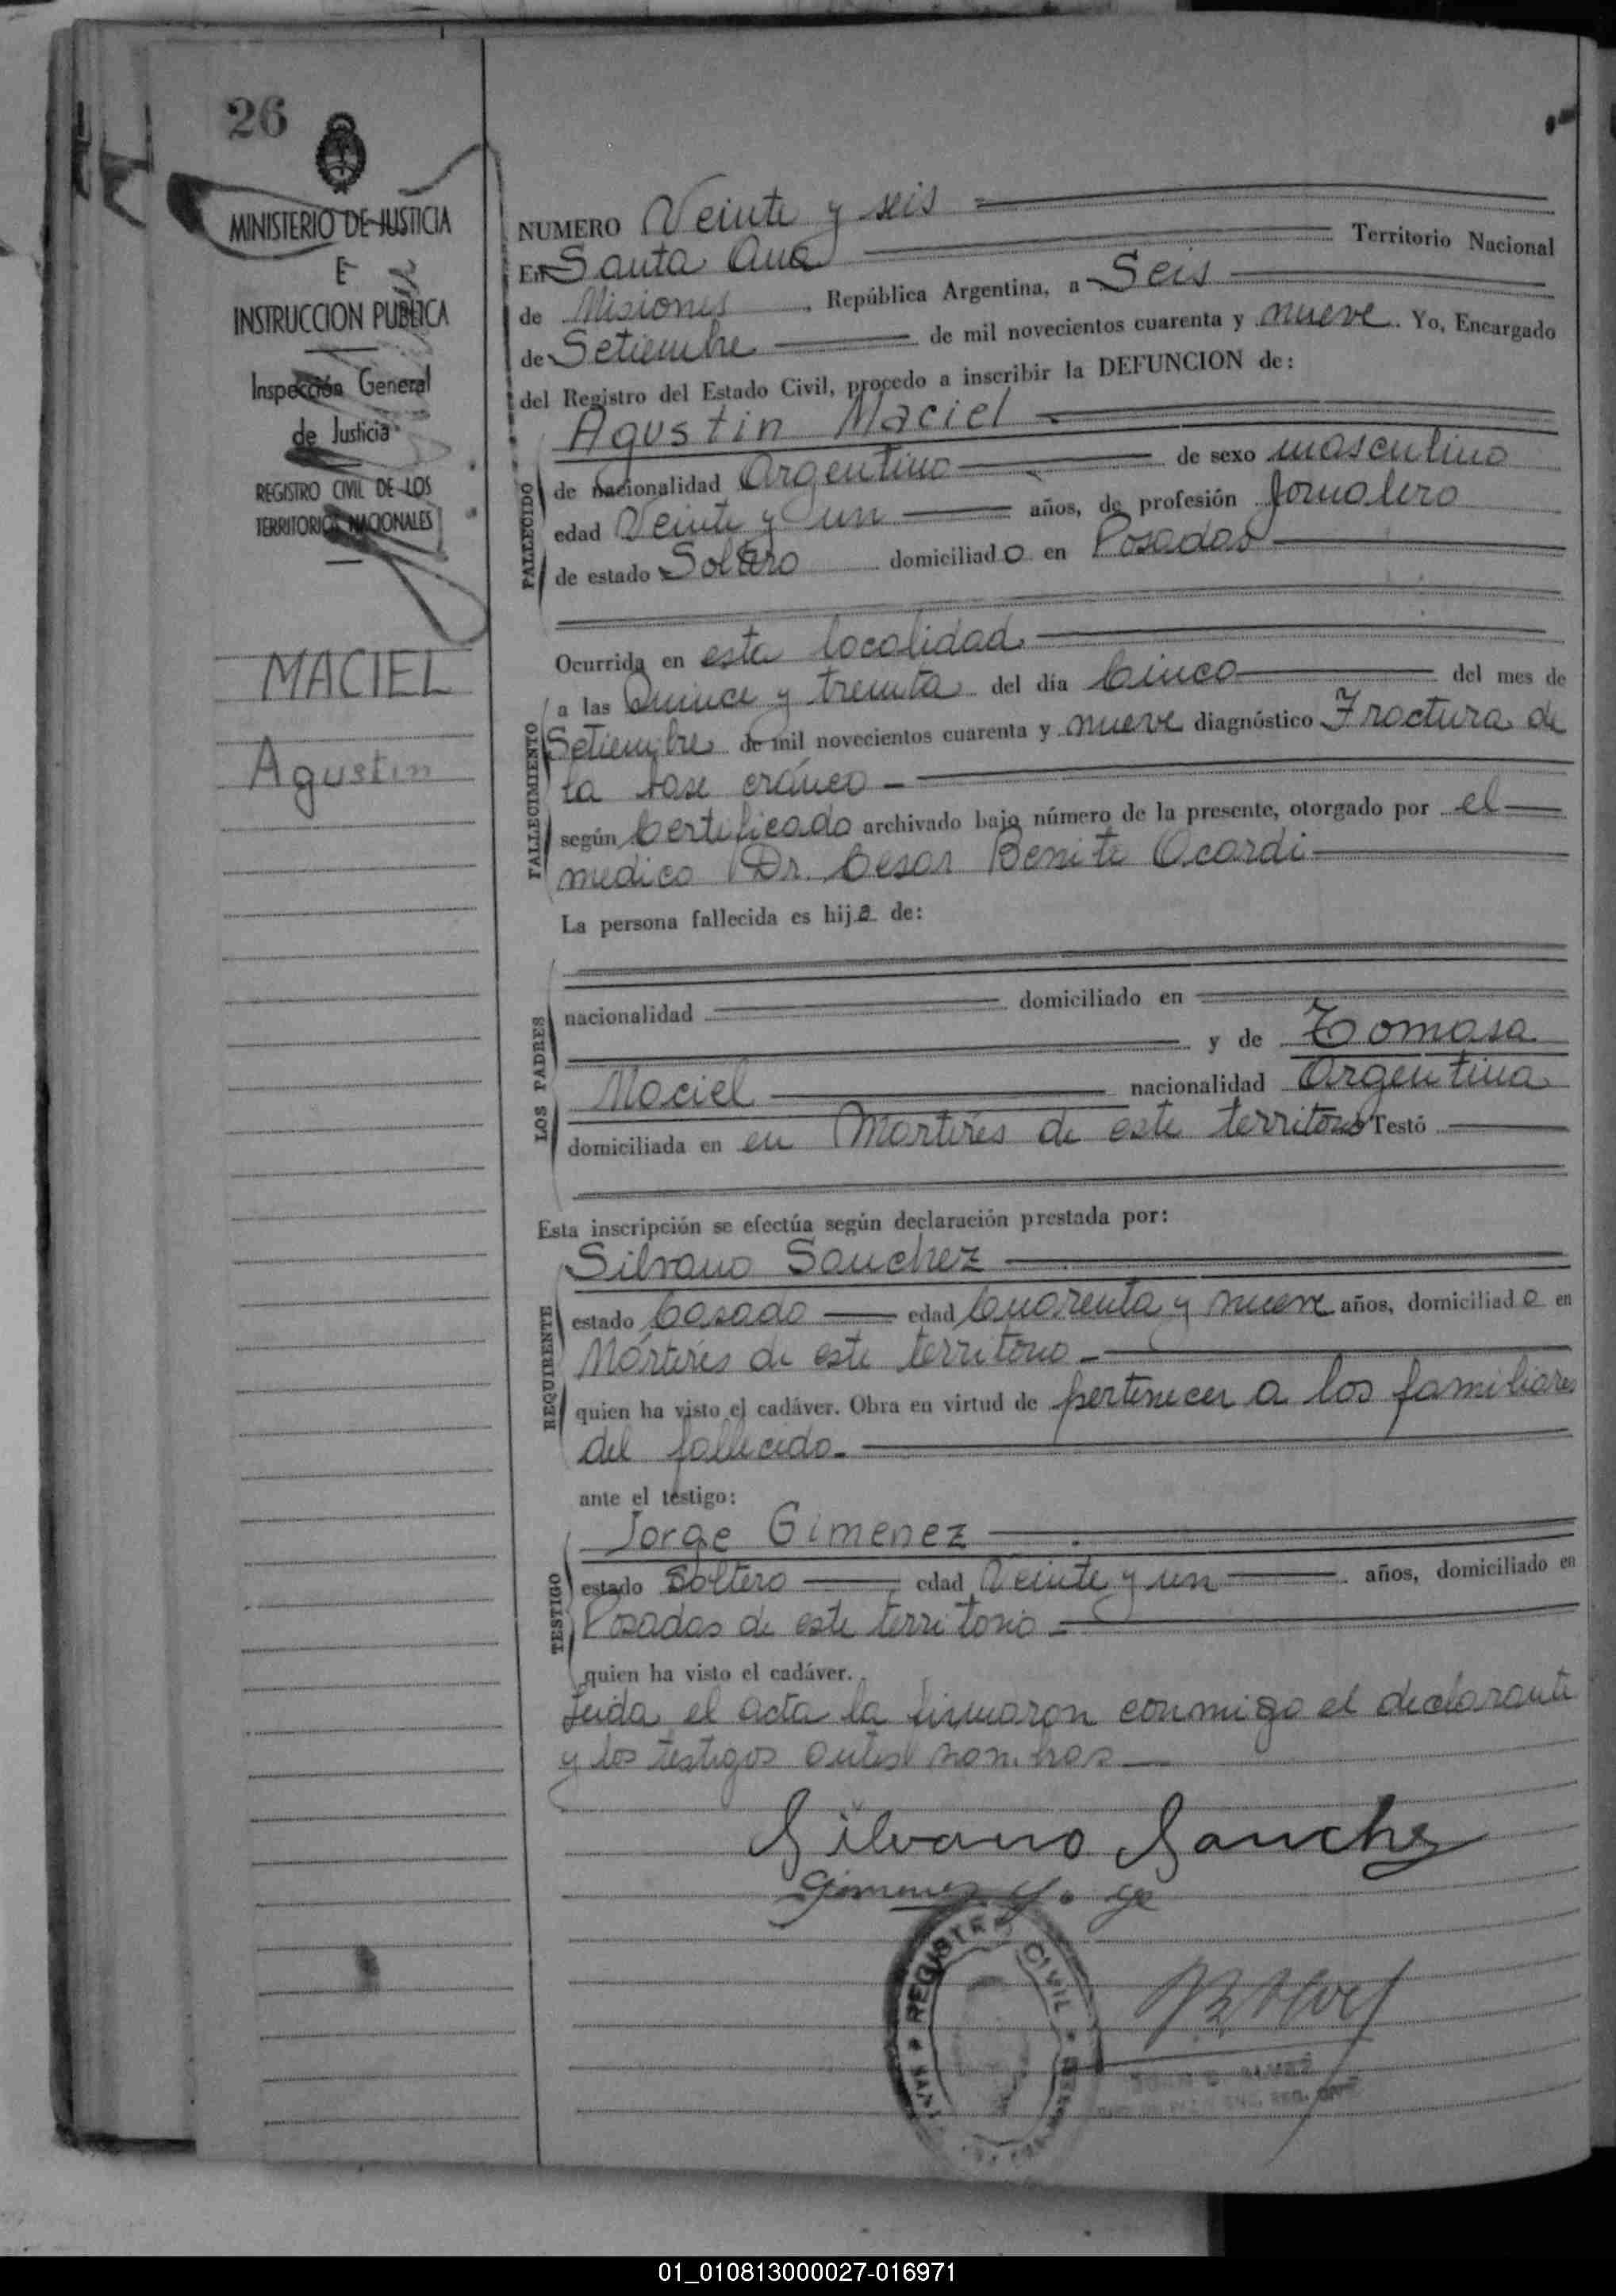 26
MINISTERIO DE JUSTICIA
E
INSTRUCCION PUBLICA
Inspección General
de Justicia
REGISTRO CIVIL DE LOS
TERRITORIOS NACIONALES
MACIEL
Agustin
NUMERO Veinte y seis
En Santa Ana Territorio Nacional
de Misiones República Argentina, a Seis
de Setiembre de mil novecientos cuarenta y nueve. Yo, Encargado
del Registro del Estado Civil, procedo a inscribir la DEFUNCION de:
FALLECIDO
Agustin Maciel
de nacionalidad Argentino de sexo masculino
edad Veinte y un años, de profesión Jornalero
de estado Soltero domiciliado en Posadas
FALLECIMIENTO
Ocurrida en esta localidad
a las Quince y treinta del día Cinco del mes de
Setiembre de mil novecientos cuarenta y nueve diagnóstico Fractura de
la base cráneo
según Certificado archivado bajo número de la presente, otorgado por el
medico Dr. Cesar Benito
La persona fallecida es hijo de:
LOS PADRES
nacionalidad domiciliado en
y de Tomasa
Maciel nacionalidad Argentina
domiciliada en en Mártires de este territorio Testó
Esta inscripción se efectúa según declaración prestada por:
REQUIRENTE
Silvano Sanchez
estado Casado edad Cuarenta y nueve años, domiciliado en
Mártires de este territorio
quien ha visto el cadáver. Obra en virtud de pertenecer a los familiares
del fallecido
ante el testigo:
TESTIGO
Jorge Gimenez
estado Soltero edad Veinte y un años, domiciliado en
Posadas de este territorio
quien ha visto el cadáver.
Leida el acta la firmaron conmigo el declarante
y los testigos
Silvano Sanchez
REGISTRO CIVIL
01_010813000027-016971